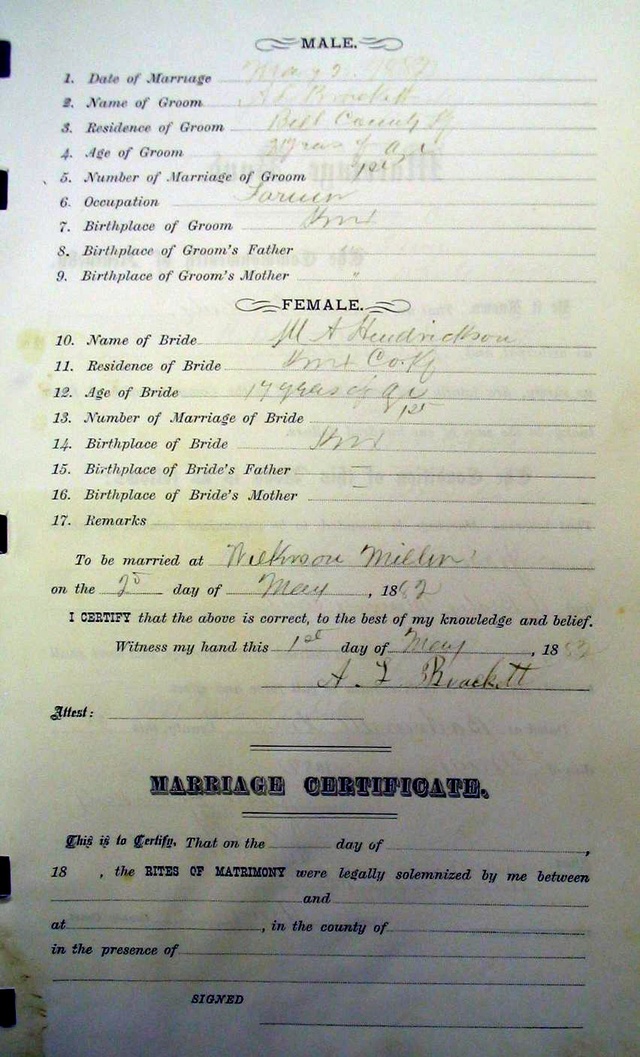 MALE.
1. Date of Marriage May 2. 1882
2. Name of Groom A L Brackett
3. Residence of Groom Bell County Ky
4. Age of Groom years of age
5. Number of Marriage of Groom 1st
6. Occupation Farmer
7. Birthplace of Groom Knox
8. Birthplace of Groom's Father
9. Birthplace of Groom's Mother "
FEMALE.
10. Name of Bride M A Hendrickson
11. Residence of Bride Knox Co Ky
12. Age of Bride 17 years of age
13. Number of Marriage of Bride 1st
14. Birthplace of Bride Knox
15. Birthplace of Bride's Father
16. Birthplace of Bride's Mother
17. Remarks
To be married at Wilkerson Miller
on the 2d day of May, 1882
I CERTIFY that the above is correct, to the best of my knowledge and belief.
Witness my hand this 1st day of May, 1882
A. L Brackett
Attest:
MARRIAGE CERTIFICATE.
This is to Certify, That on the day of ,
18 , the RITES OF MATRIMONY were legally solemnized by me between
and
at , in the county of
in the presence of
SIGNED